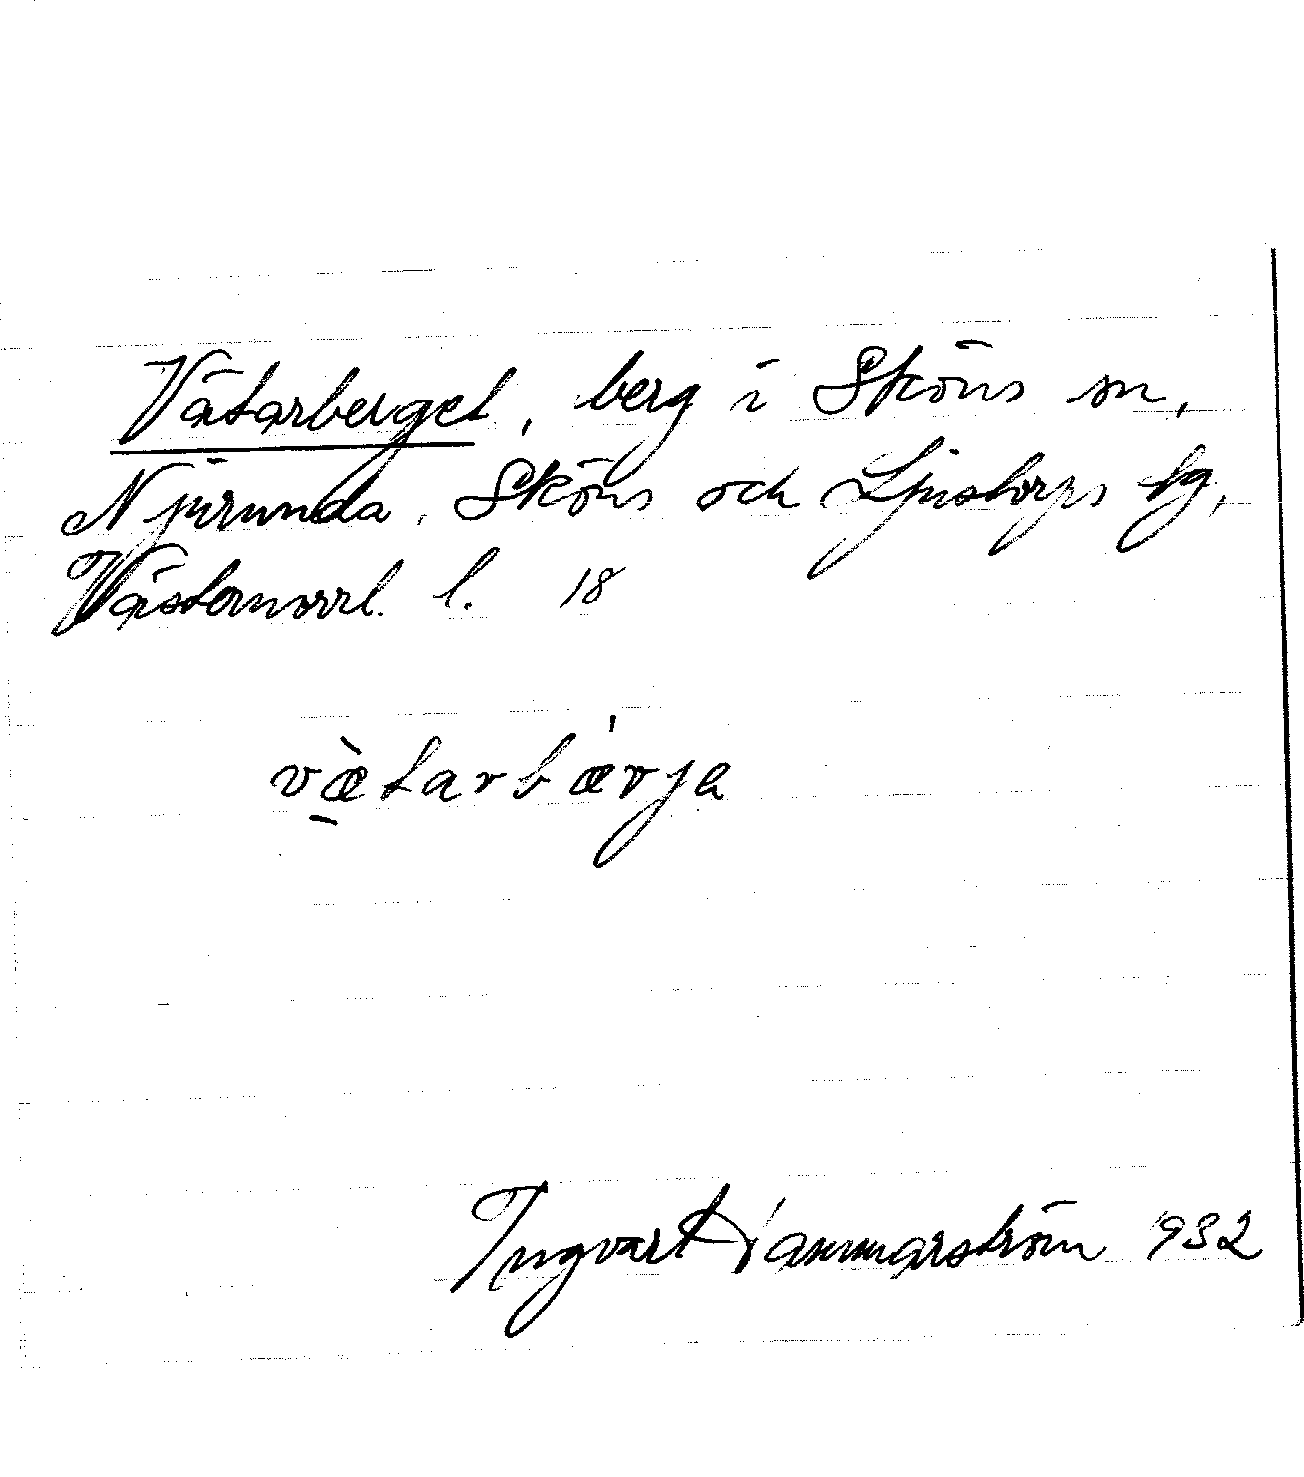 Vätarberget, berg i Sköns sn,
Njurunda, Sköns och Ljustorps tg,
Västernorrl. l. 18
væ̀tarbærja
Ingvart Hammarström 1932